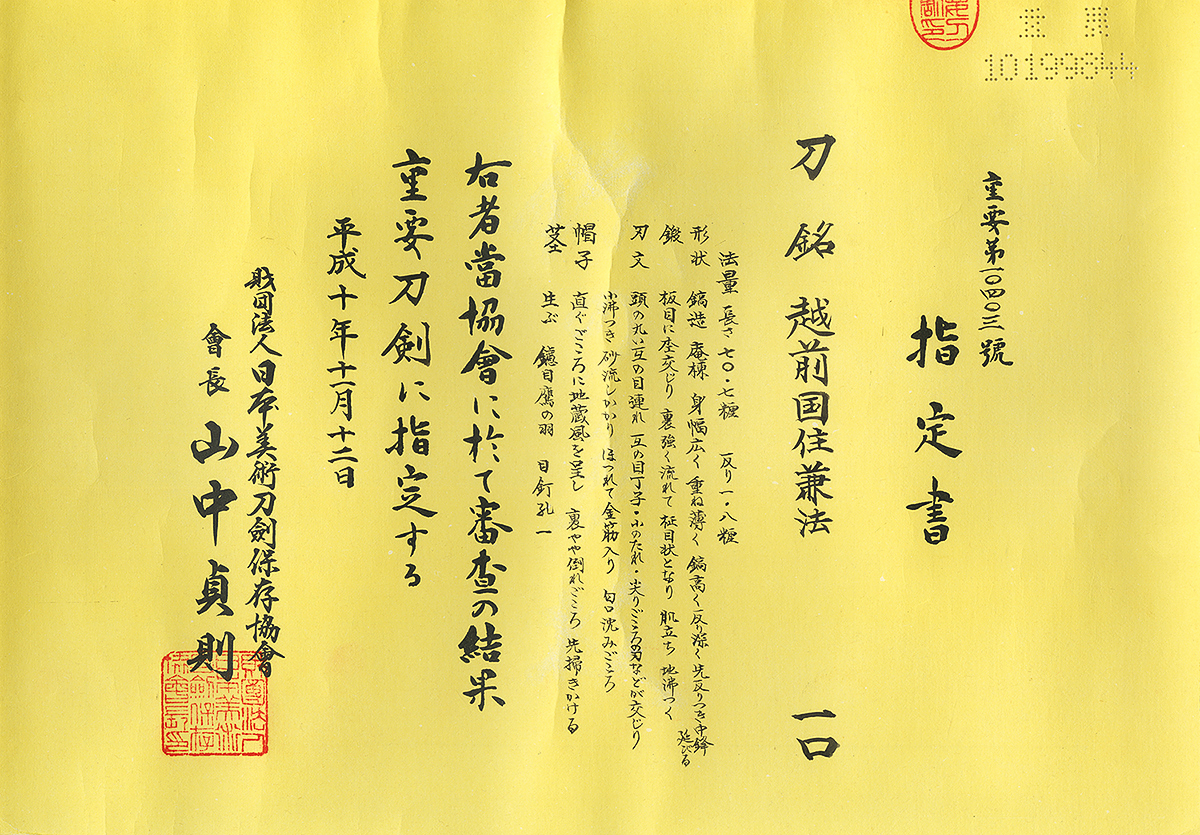 10199844
重要第一〇四〇三號
指定書
刀 銘 越前国住兼法 一口
法量 長さ 七〇・七糎 反り 一・八糎
形状 鎬造 庵棟 身幅広く 重ね薄く 鎬高く 反り深く 先反りつき 中鋒延びる
鍛 板目に杢交じり 裏強く流れて 柾目状となり 肌立ち 地沸つく
刃文 頭の丸い互の目連れ 互の目丁子・小のたれ・尖りごころの刃などが交じり
小沸つき 砂流しかかり ほつれて金筋入り 匂口沈みごころ
帽子 直ぐごころに地蔵風を呈し 裏やや倒れごころ 先掃きかける
茎 生ぶ 鑢目鷹の羽 目釘孔一
右者當協會に於て審査の結果
重要刀剣に指定する
平成十年十一月十二日
財団法人日本美術刀劍保存協會
會長 山中貞則